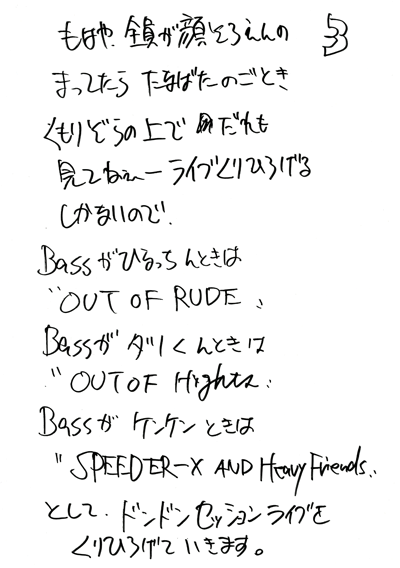 もはや、全員が顔そろえんの
まってたら たなばたのごとき
くもりぞらの上で だれも
見てねぇーライブくりひろげる
しかないので、
Bassがひるっちんときは
"OUT OF RUDE"
Bassが ダリくんときは
"OUT OF Hightz"
Bassが ケンケンときは
"SPEEDER-X AND Heavy Friends"
として、ドンドンセッションライブを
くりひろげていきます。